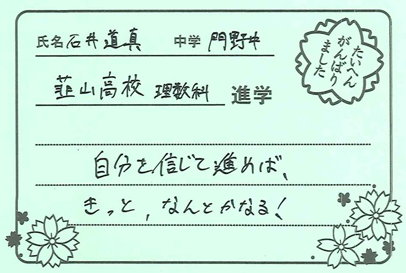 氏名 石井 道真 中学 門野中
韮山高校 理数科 進学
たいへん
がんばり
ました
自分を信じて進めば、
きっと、なんとかなる!